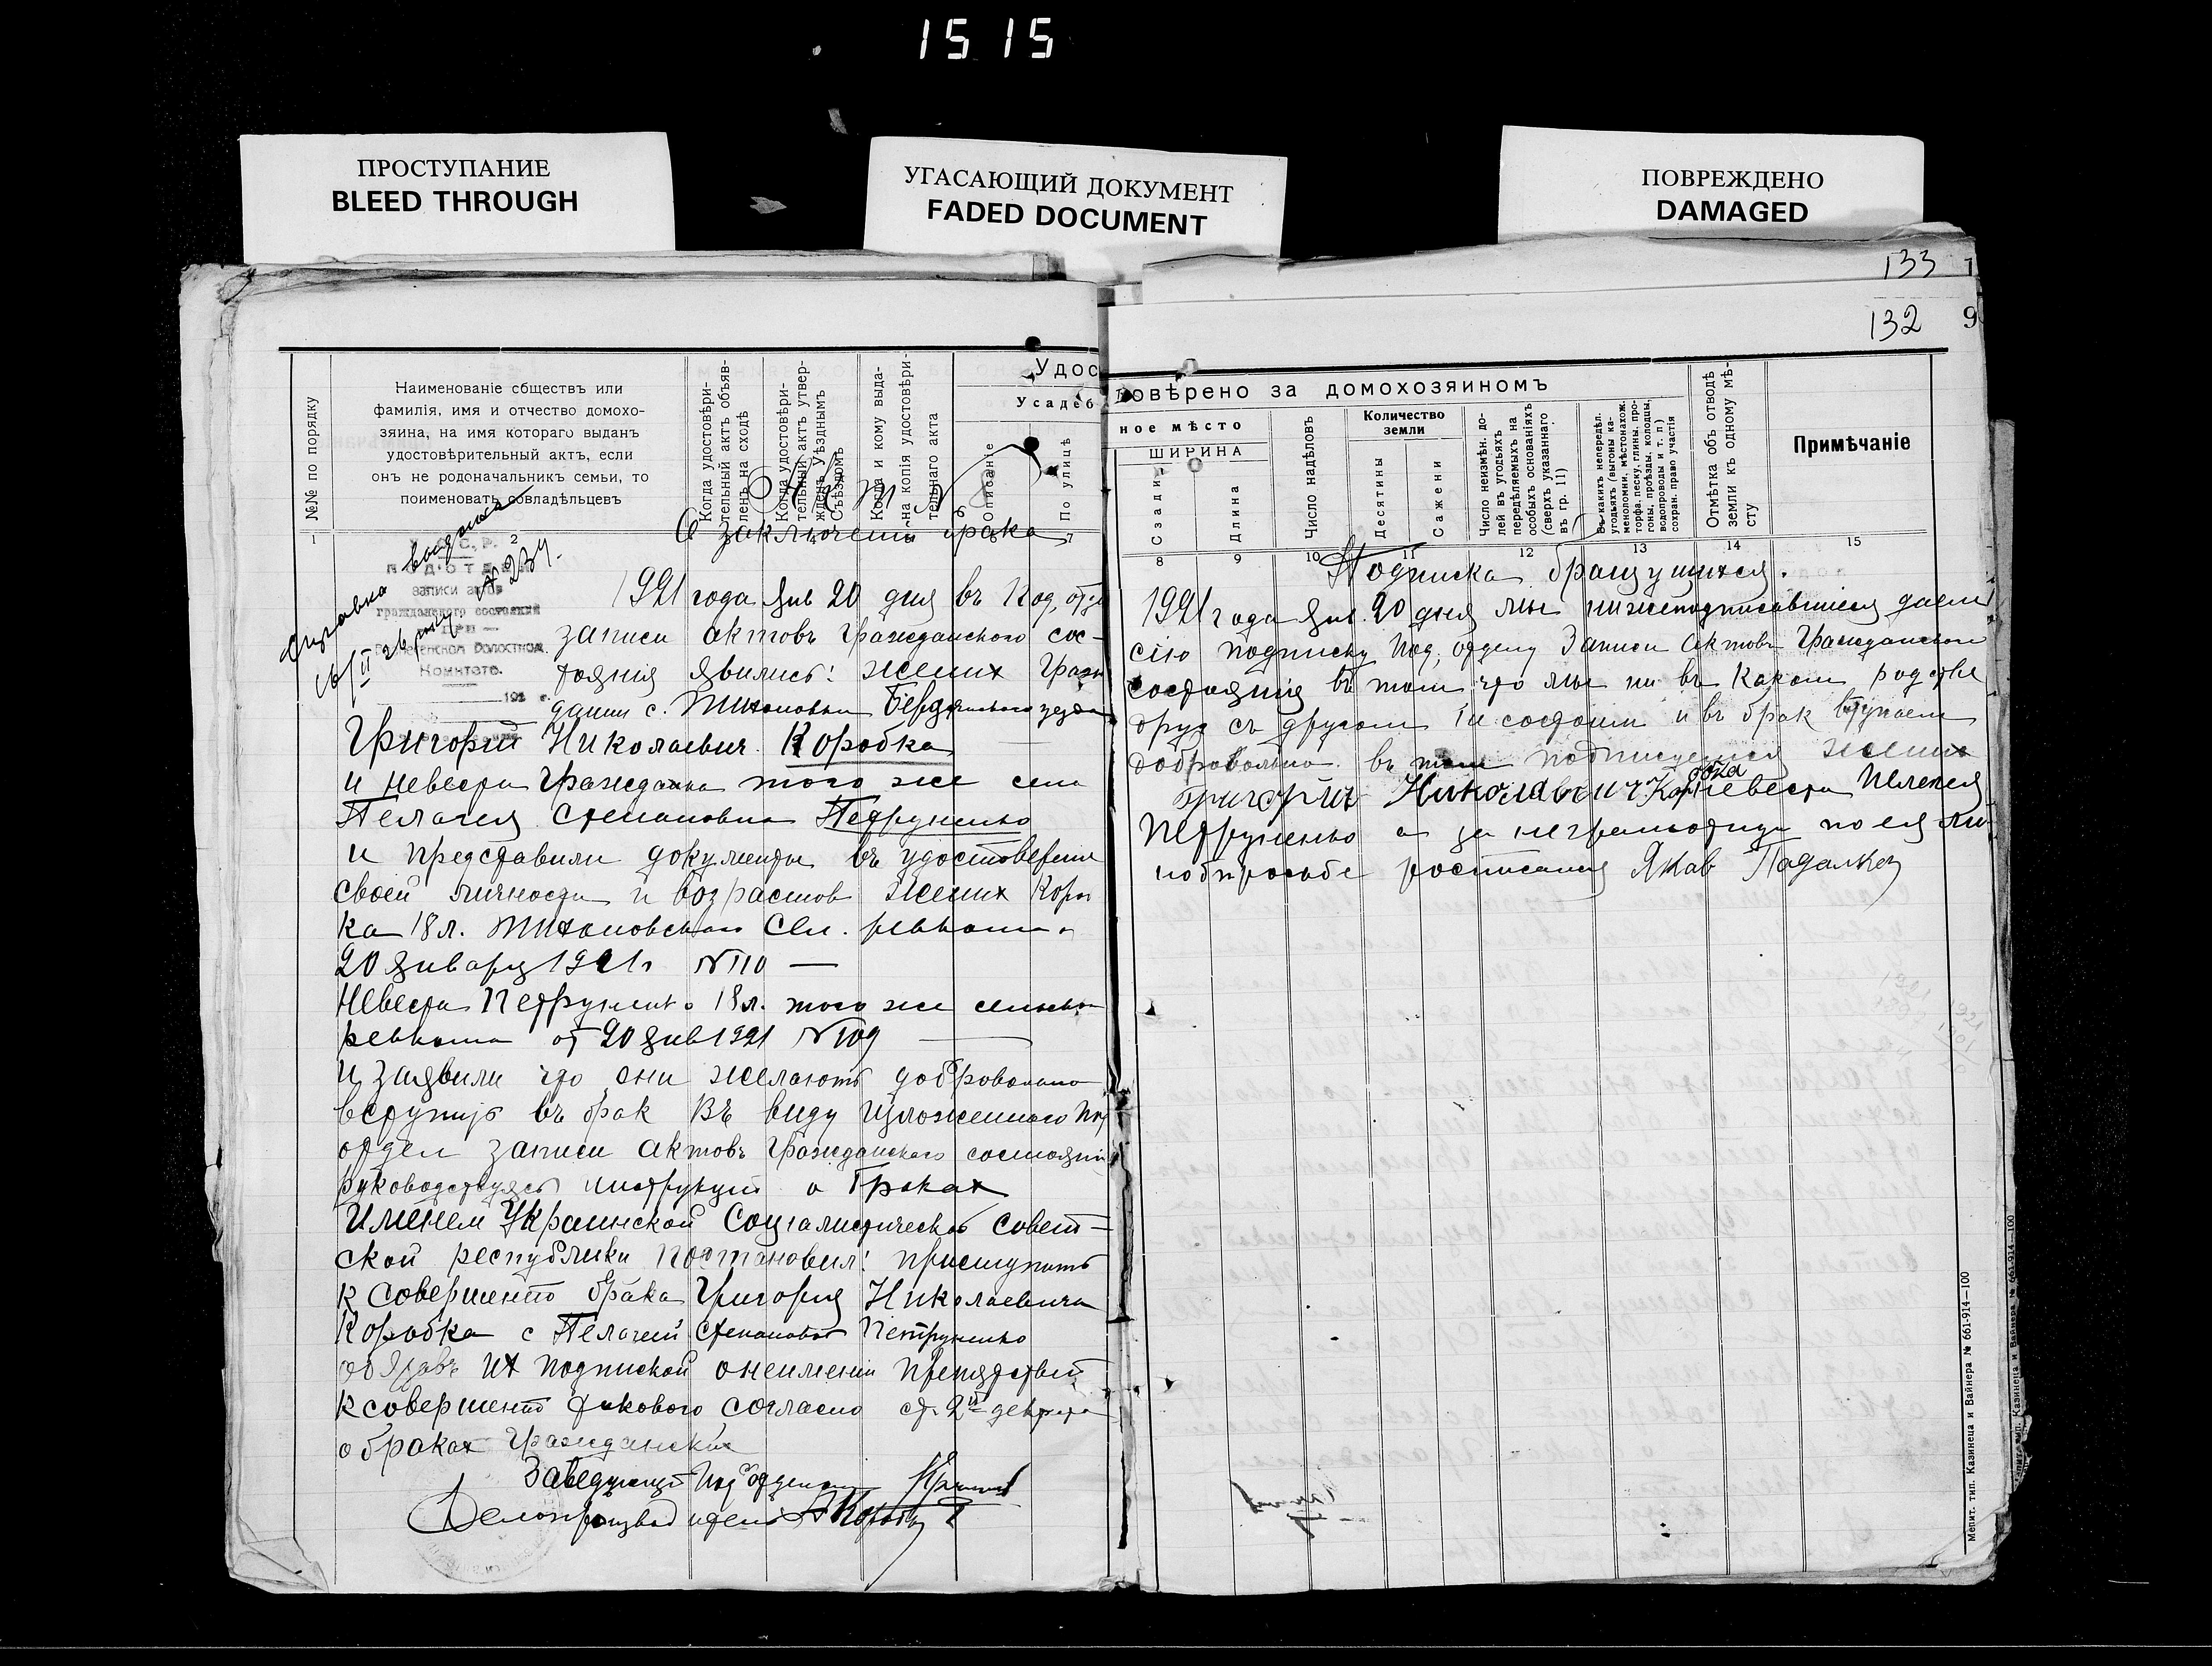 1515
ПРОСТУПАНИЕ
BLEED THROUGH
УГАСАЮЩИЙ ДОКУМЕНТ
FADED DOCUMENT
ПОВРЕЖДЕНО
DAMAGED
133
132
9
№№ по порядку
Наименованіе обществъ или
фамилія, имя и отчество домохо-
зяина, на имя котораго выданъ
удостовѣрительный актъ, если
онъ не родоначальникъ семьи, то
поименовать совладѣльцевъ
Когда удостовѣри-
тельный актъ объяв-
ленъ на сходѣ
Когда удостовѣри-
тельный актъ утвер-
жденъ Уѣзднымъ
Съѣздомъ
Когда и кому выда-
на копія удостовѣри-
тельнаго акта
Удос
Усадеб
Описаніе
По улицѣ
Актъ №
О заключеніи брака
Справка выдана
16/II 26 году № 239.
У. С. С. Р.
ПОДОТДЕЛ
записи актов
гражданского состояния
— при —
Волостном
Комитете.
192 г.
1921 года Янв 20 дня въ Под. отде
записи актовъ Гражданского сос-
тояния явились: жених Граж
данин с. Тихоновки Бердянского уезда
Григорий Николаевич Коробка
и невеста Гражданка того же села
Пелагея Степановна Петруненко
и представили документы въ удостоверение
своей личности и возрастов жених Короб
ка 18 л. Тихоновского Сел. ревкома
20 Января 1921 г № 110 —
Невеста Петруненко 18 л. того же сельского
ревкома от 20 Янв 1921 № 109
и заявили что они желаютъ добровольно
вступить въ брак Въ виду изложенного Под
отдел записи актовъ Гражданского состояния
руководствуясь инструкций о Браках
Именем Украинской Социалистической совет-
ской республики постановил: приступить
к совершению брака Григория Николаевича
Коробка с Пелагеей Степановной Петруненко
обязавъ их подпиской о неимении препятствий
к совершению такового согласно ст. 2й декрета
о браках Гражданских
Заведующий Под отделом
Делопроизводитель
довѣрено за домохозяиномъ
ное мѣсто
ШИРИНА
Сзади
Длина
Число надѣловъ
Количество
земли
Десятины
Сажени
Число неизмѣн. до-
лей въ угодьяхъ
передѣляемыхъ на
особыхъ основаніяхъ
(сверхъ указаннаго
въ гр. 11)
Въ какихъ непередѣл.
угодьяхъ (выгоны ка-
меноломни, мѣстонахож.
торфа, песку, глины, про-
гоны, проѣзды, колодцы,
водопроводы и т. п)
сохран. право участія
Отмѣтка объ отводѣ
земли къ одному мѣ-
сту
Примѣчаніе
8 9 10 11 12 13 14 15
Подписка брачущихся.
1921 года Янв. 20 дня мы нижеподписавшиеся даем
сію подписку Под. отделу Записи Актовъ Гражданского
состояния въ том что мы ни въ каком родстве
друг съ другом не состоим и въ брак вступаем
добровольно. въ том подписуемся жених
Григорий Николаевич Коробка невеста Пелагея
Петруненко а за неграмотную по ея ли-
чной просьбе росписался Яков Падалка
Мелит. тип. Казинеца и Вайнера № 661-914—100